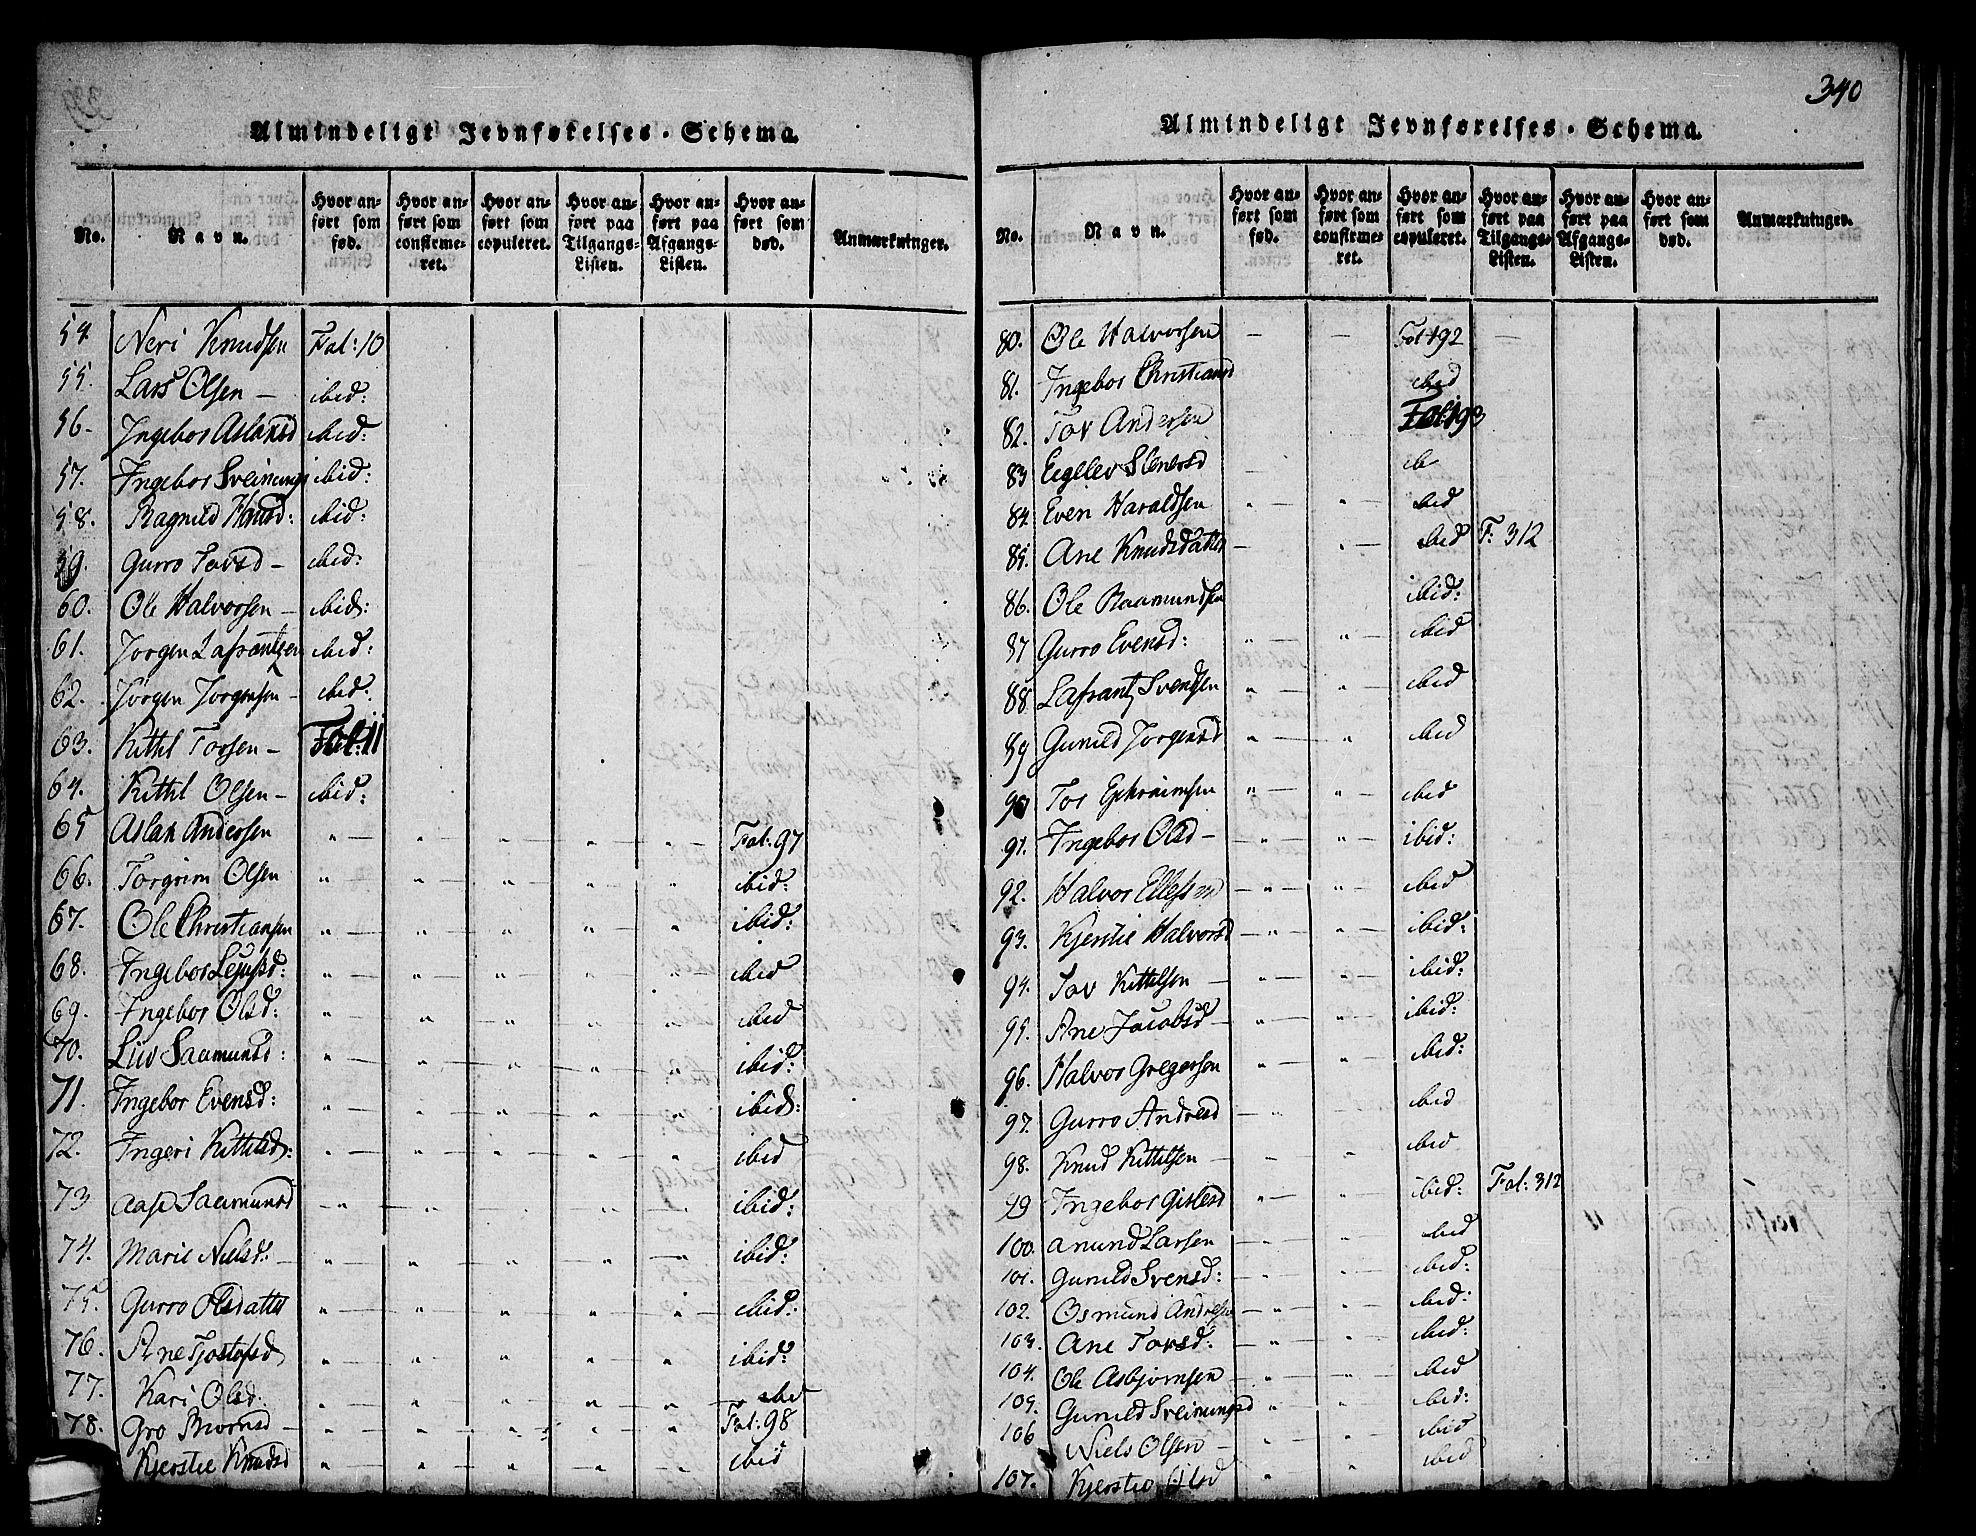 340
Almindeligt Jevnførelses-Schema.
No. Navn. Hvor anført som fød. Hvor anført som confirmeret. Hvor anført som copuleret. Hvor anført paa Tilgangs-Listen. Hvor anført paa Afgangs-Listen. Hvor anført som død. Anmærkninger.
54. Neri Knudsen Fol: 10
55. Lars Olsen — ibid:
56. Ingebor Aslaksd ibid:
57. Ingebor Sveinungs ibid:
58. Ragnild Knud: ibid:
59. Gurro Torsd — ibid:
60. Ole Halvorsen — ibid:
61. Jorgen Lafrantzen ibid:
62. Jörgen Jorgensen — ibid:
63. Kittil Torsen — Fol: 11
64. Kittil Olsen — ibid:
65 Aslak Andersen " " " " " Fol: 97
66. Torgrim Olsen " " " " " ibid:
67. Ole Christiansen " " " " " ibid:
68. Ingebor : " " " " " ibid
69. Ingebor Olsd: " " " " " ibid
70. Liv Saamunsd: " " " " " ibid:
71. Ingebor Evensd: " " " " " ibid:
72. Ingeri Kittilsd: " " " " " ibid
73 Aase Saamunsd " " " " " ibid:
74. Marie Nielsd: " " " " " ibid:
75. Gurro Olsdatter " " " " " ibid:
76. Ane Tjostofsd " " " " " ibid:
77. Kari Olsd. " " " " " ibid
78. Gro Biornsd — " " " " " Fol: 98
Kjerstie Knudsd " " " " " ibid
Almindeligt Jevnførelses-Schema.
No. Navn. Hvor anført som fød. Hvor anført som confirmeret. Hvor anført som copuleret. Hvor anført paa Tilgangs-Listen. Hvor anført paa Afgangs-Listen. Hvor anført som død. Anmærkninger.
80. Ole Halvorsen — — Fol 192 —
81. Ingebor Christiansd ibid
82. Tov Andersen Fol: 193
83 Eegelev Stenersd — ib
84. Even Haraldsen " " ibid
85. Ane Knudsdatter — " ibid F: 312
86. Ole Raamundsen ibid:
87 Gurro Evensd: " " ibid
88 Lafrantz Svendsen " " ibid
89 Gunild Jorgensd " " ibid
90 Tor Ephraimsen " " ibid
91. Ingebor Olsd — " " ibid:
92. Halvor Ellefsen " " ibid
93. Kjerstie Halvorsd " " ibid:
94. Tov Kittelsen " " ibid:
95. Ane Jacobsd " " ibid:
96. Halvor Gregersen " " ibid:
97. Gurro Andresd " " ibid
98. Knud Kittilsen " " ibid
99 Ingebor Gislesd " " ibid: Fol: 312
100. Anund Larsen " " ibid
101. Gunild Svensd: " " ibid:
102. Osmund Andresen " " ibid:
103. Ane Torsd: " " ibid:
104. Ole Asbjørnsen " " ibid
105. Gunild Sveinungsd " " ibid:
106 Niels Olsen — " " ibid
107. Kjerstie Olsd " " ibid